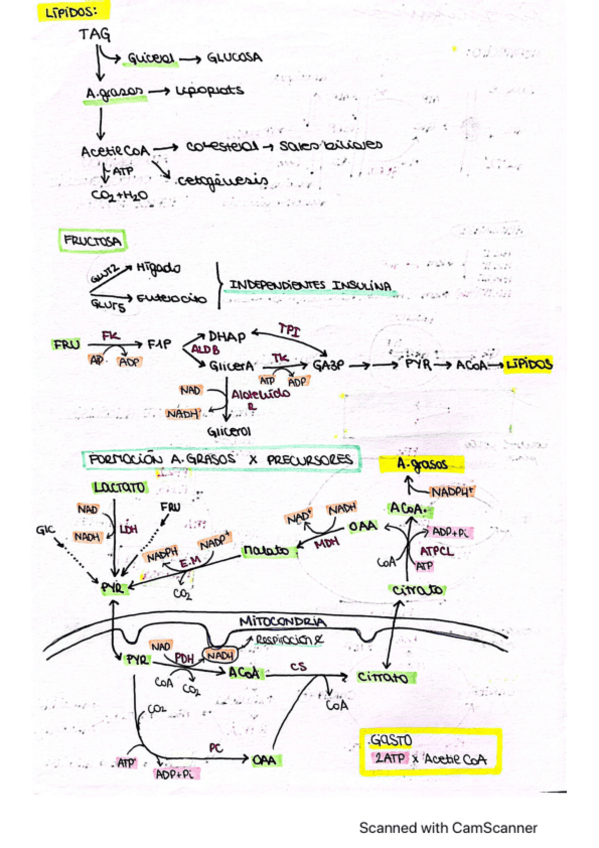 LÍPIDOS:
TAG
Glicerol → GLUCOSA
A.grasos → Lipoprots
Acetil CoA → Colesterol → Sales biliares
ATP
cetogénesis
CO2+H2O
FRUCTOSA
GLUT2 Hígado
GLUT5 Enterocito
INDEPENDIENTES INSULINA
FRU FK F1P
AP ADP
ALDB
DHAP TPI
GlicerA TK GA3P → PYR → ACoA → LÍPIDOS
ATP ADP
NAD
NADH
Aldehído
R
Glicerol
FORMACIÓN A.GRASOS X PRECURSORES
A.grasos
NADPH+
LACTATO
NAD
NADH
LDH
FRU
GIC
PYR
NADPH NADP+
E.M
CO2
Malato
NAD+ NADH
MDH
OAA
ACoA.
ADP+Pi
ATPCL
CoA ATP
Citrato
MITOCONDRIA
RESPIRACIÓN
PYR NAD PDH NADH ACoA CS Citrato
CoA CO2
CoA
CO2
PC
ATP ADP+Pi
OAA
GASTO
2ATP x Acetil CoA
Scanned with CamScanner